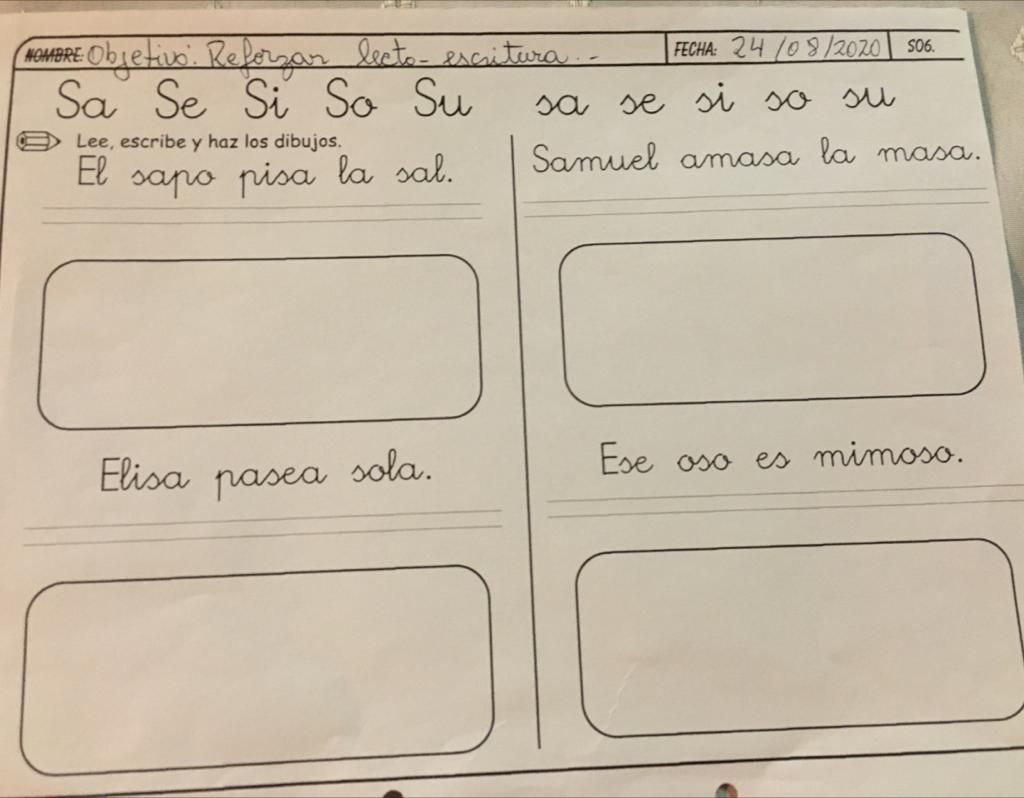 NOMBRE: Objetivo: Reforzar lecto-escritura.- FECHA: 24/08/2020 S06.
Sa Se Si So Su sa se si so su
Lee, escribe y haz los dibujos.
El sapo pisa la sal.
Samuel amasa la masa.
Elisa pasea sola.
Ese oso es mimoso.